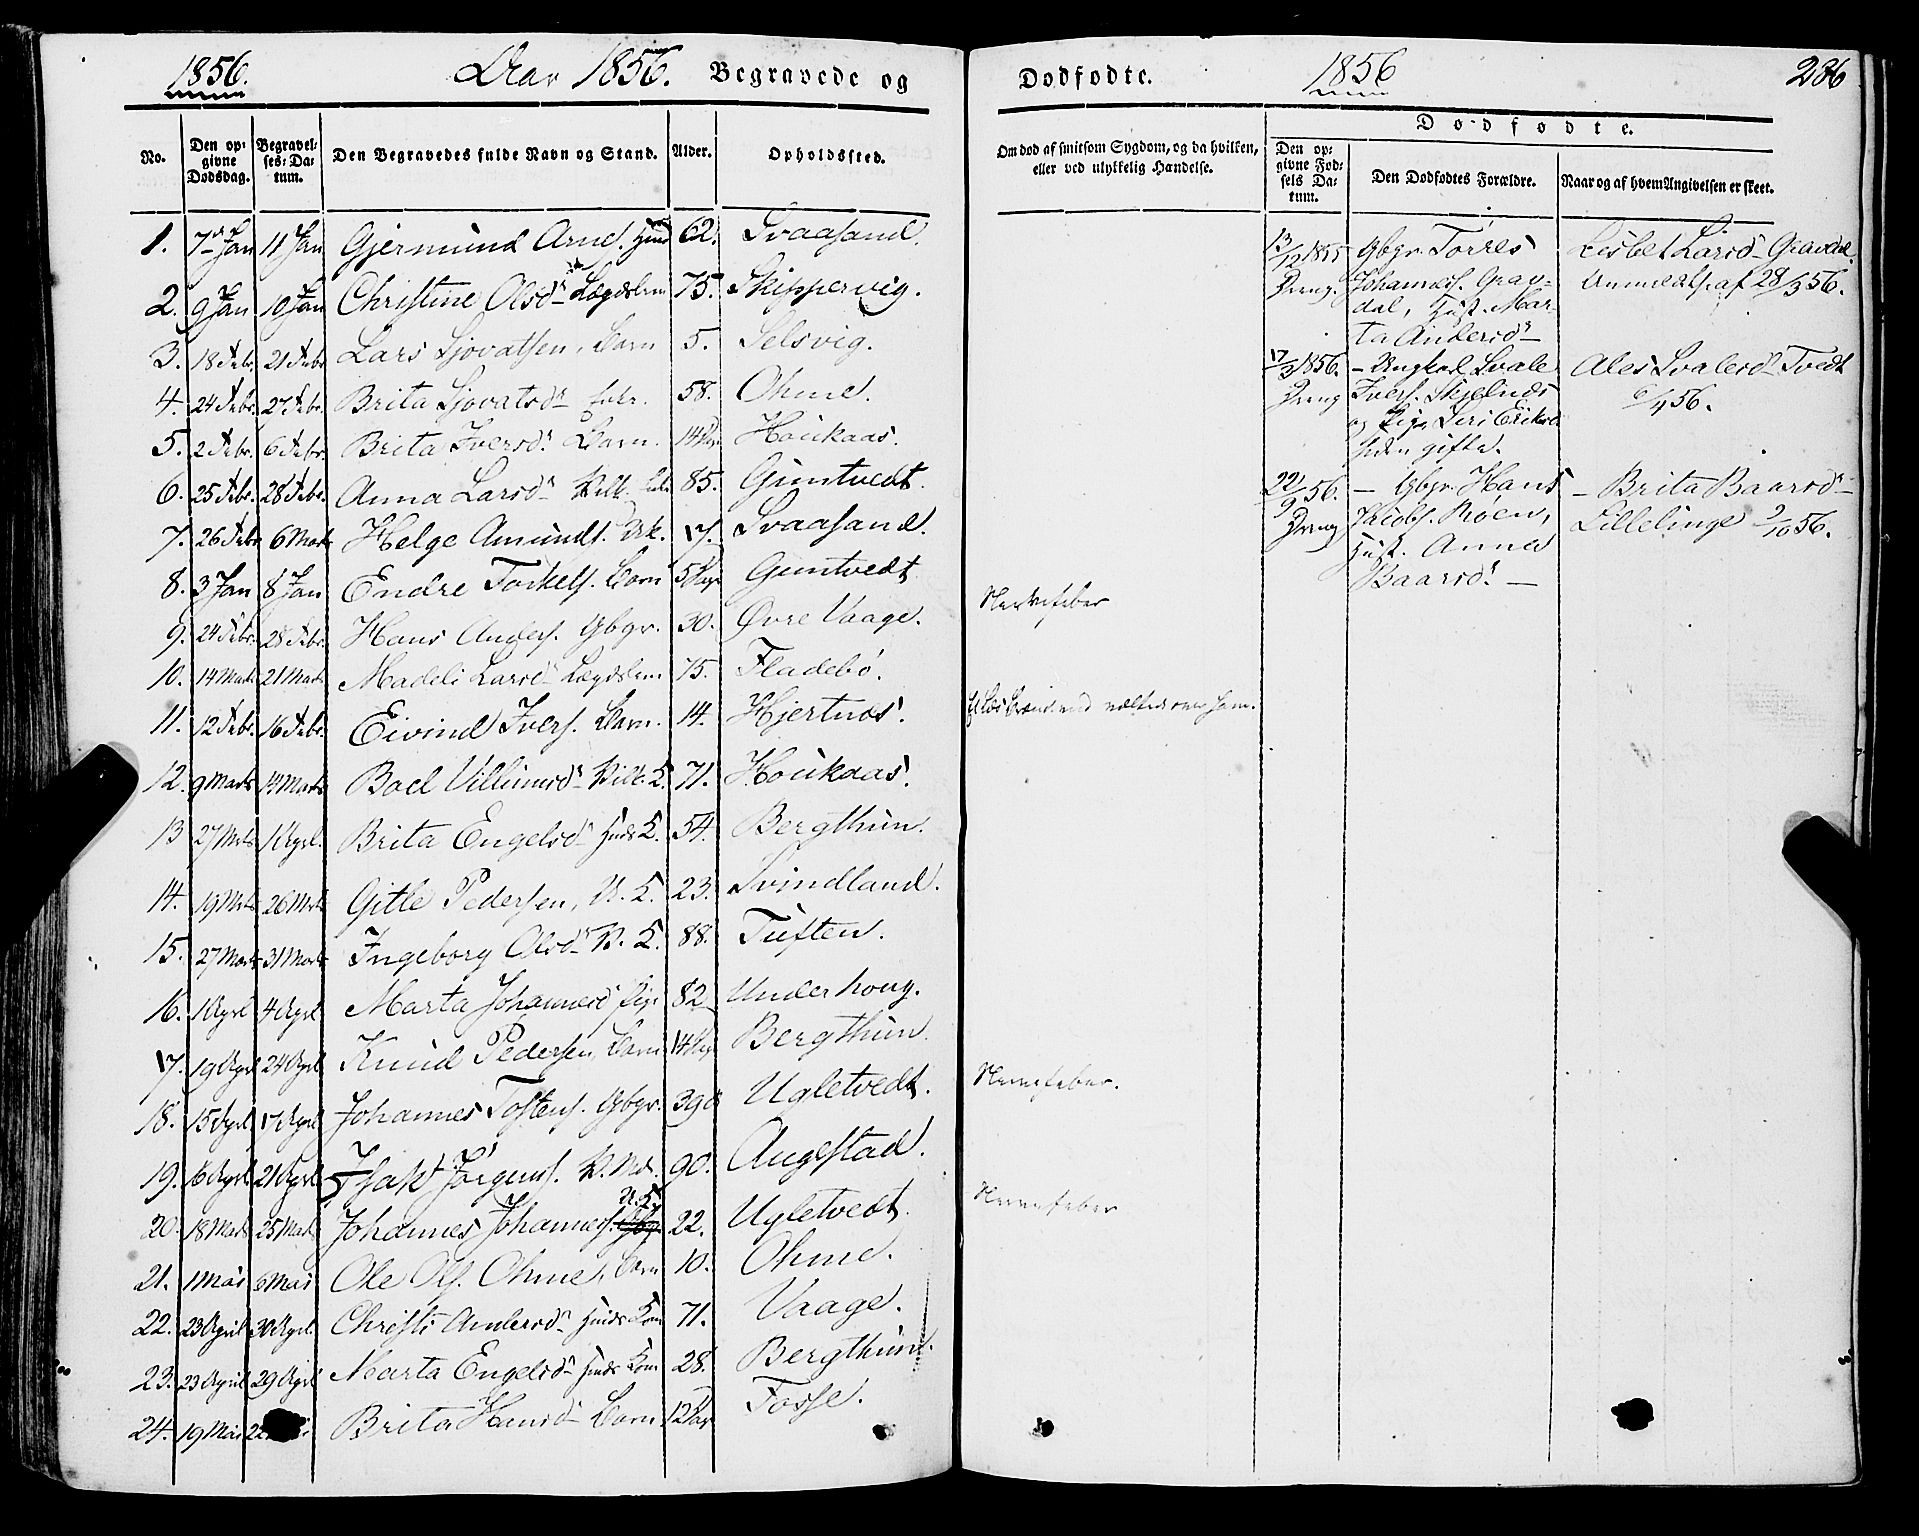 1856. Aar 1856. Begravede og Dødfødte. 1856 286
No. Den opgivne Dødsdag. Begravelses-Datum. Den Begravedes fulde Navn og Stand. Alder. Opholdssted.
1. 7 Jan 11 Jan Gjermund Arnes. Huus 62. Svaasand.
2. 9 Jan 10 Jan Christine Olsdr Lægdslem 75. Skippervig.
3. 18 Febr 21 Febr Lars Sjovatsen, Barn 5. Selsvig.
4. 24 Febr. 27 Febr. Brita Sjovatsdr Enke. 58. Ohme.
5. 2 Febr. 6 Febr. Brita Iversdr Barn. 14 Dage Houkaas.
6. 25 Febr. 28 Febr. Anna Larsdr Vilk. 85. Guntvedt.
7. 26 Febr 6 Marts Helge Amunds. 17. Svaasand.
8. 3 Jan 8 Jan Endre Torkels. Barn 5 Dage Guntvedt
9. 24 Febr. 28 Febr. Hans Anders. Gbgr. 30. Øvre Vaage.
10. 14 Marts 21 Marts Madeli Larsdr Lægdslem 75. Fladebø.
11. 12 Febr. 16 Febr. Eivind Ivers. Barn. 14. Hjertnæs.
12. 9 Marts 14 Marts Boel Villumsdr Vilk. E. 71. Houkaas.
13 27 Mrts 1 Apri. Brita Engelsdr Huds K. 54. Bergthun.
14. 19 Mrts 26 Mrts Gitle Pedersen, U. K. 23. Svindland.
15. 27 Marts 31 Marts Ingeborg Olsdr V. E. 88. Tuften.
16. 1 April 4 April Marta Johannesdr Pige 82 Underhoug.
17. 19 April 24 April Knud Pedersen, Barn 14 Dage Bergthun.
18. 15 April 17 April Johannes Tostens. Gbgr. 39 Ugletvedt.
19. 16 April 21 April Isak Jørgens. V. Md. 90. Augestad.
20. 18 Marts 25 Marts Johannes Johannes. U. K. Gbg. 22. Ugletvedt.
21. 1 Mai 6 Mai Ole Ols. Ohme, Barn 10. Ohme.
22. 23 April 30 April. Christi Andersdr Huds Kone 71. Vaage.
23. 23 April 29 April Marta Engelsdr Huds Kone 28. Bergthun.
24. 19 Mai 22 Brita Hansdr Barn 12 Dage Fosse.
Om død af smitsom Sygdom, og da hvilken, eller ved ulykkelig Hændelse.
Nervefeber
Nervefeber.
Nervefeber
Dødfødte.
Den opgivne Fødsels Datum. Den Dødfødtes Forældre. Naar og af hvem Angivelsen er skeet.
13/12 1855 Gbgr. Torres Lisbet Larsdr Gravdal
Dreng. Johannes. Grav- Anmeldt af 28/3 56.
dal, Hust. Mar-
ta Andersdr
17/3 1856. – Ungkarl Svale Ales Svalesdr Tvedt
Dreng Ivers. Skjelnæs 6/4 56.
og Pige Siri Eriksd
siden gifte.
22/9 56. – Gbgr. Hans – Brita Baarsdr –
Dreng Jacobs. Roen, Lillelinge 9/10 56.
Hust. Anna
Baarsdr –